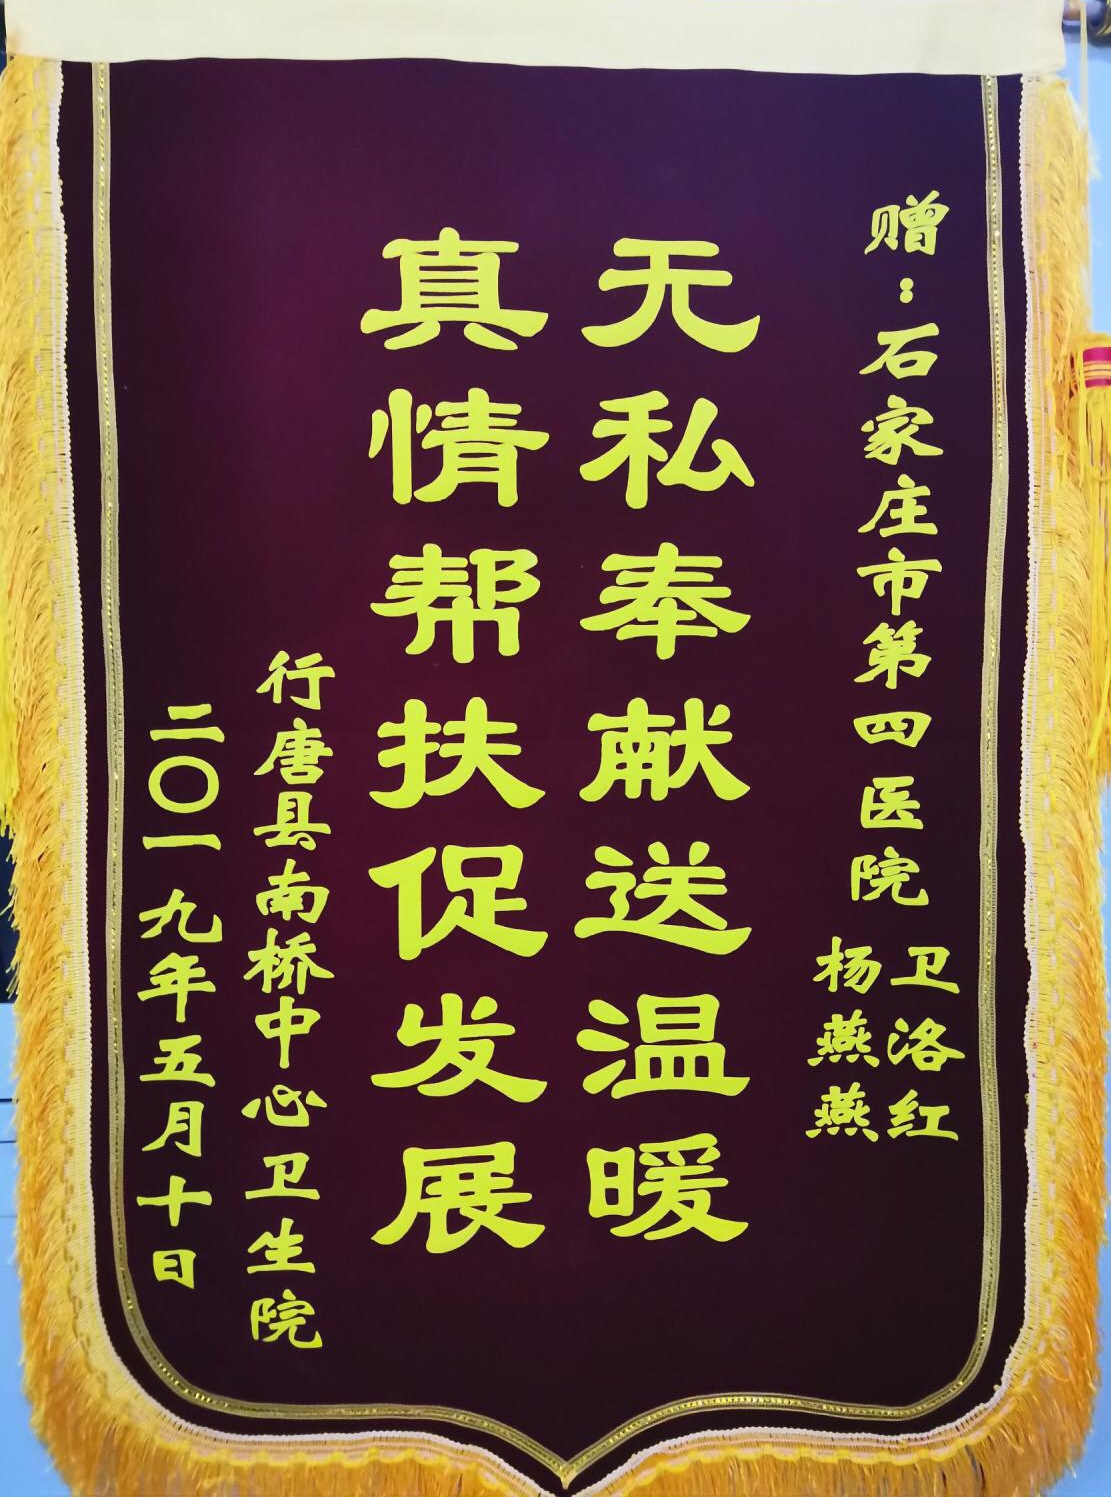 赠：石家庄市第四医院
卫洛红
杨燕燕
无私奉献送温暖
真情帮扶促发展
行唐县南桥中心卫生院
二〇一九年五月十日